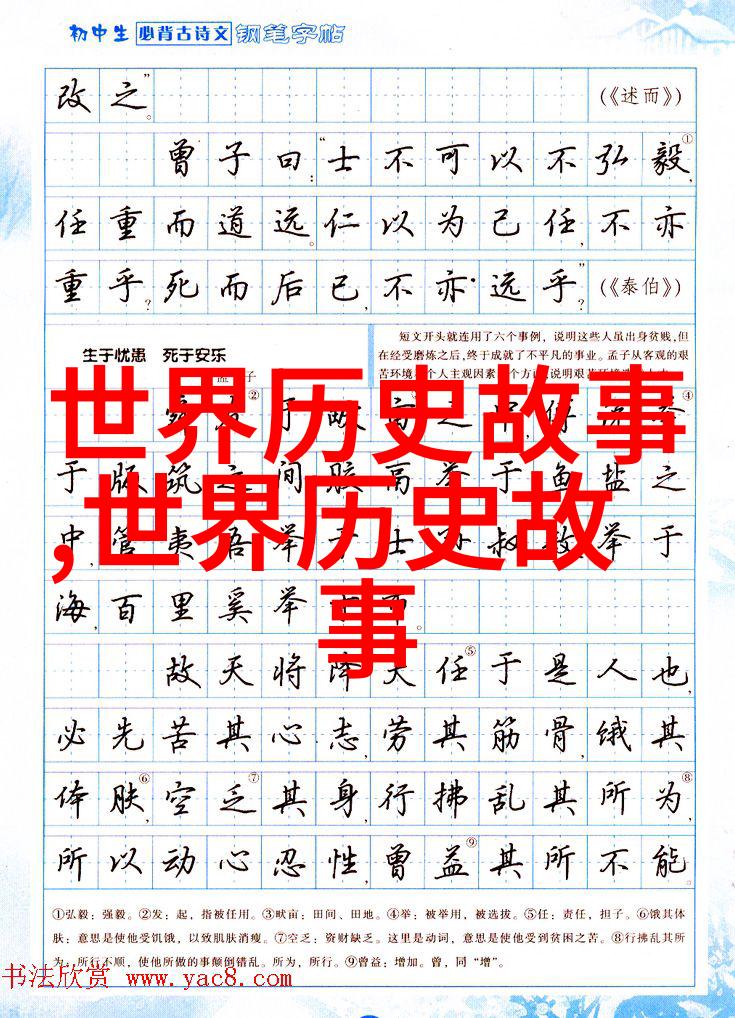 初中生 必背古诗文 钢笔字帖
改之”。 (《述而》)
曾子曰:“士不可以不弘毅①,
任重而道远。仁以为己任,不亦
重乎?死而后已,不亦远乎?” (《泰伯》)
生于忧患 死于安乐
孟子
短文开头就连用了六个事例,说明这些人虽出身贫贱,但
在经受磨炼之后,终于成就了不平凡的事业。孟子从客观的艰
苦环境和个人主观因素
世界历史故事
,世界历史故
事
②于畎亩之中,傅说举④
于版筑之间,胶鬲举于鱼盐之
中,管夷吾举于士,孙叔敖举于
海,百里奚举于市。
故天将降大任⑤于是人也,
必先苦其心志,劳其筋骨,饿其
体肤⑥,空乏⑦其身,行拂乱其所为⑧,
所以动心忍性,曾益⑨其所不能
①弘毅:强毅。②发:起,指被任用。③畎亩:田间、田地。④举:被举用,被选拔。⑤任:责任,担子。⑥饿其体
肤:意思是使他受饥饿,以致肌肤消瘦。⑦空乏:资财缺乏。这里是动词,意思是使他受到贫困之苦。⑧行拂乱其所
为:所行不顺,使他所做的事颠倒错乱。所为,所行。⑨曾益:增加。曾,同“增”。
书法欣赏 www.yac8.com